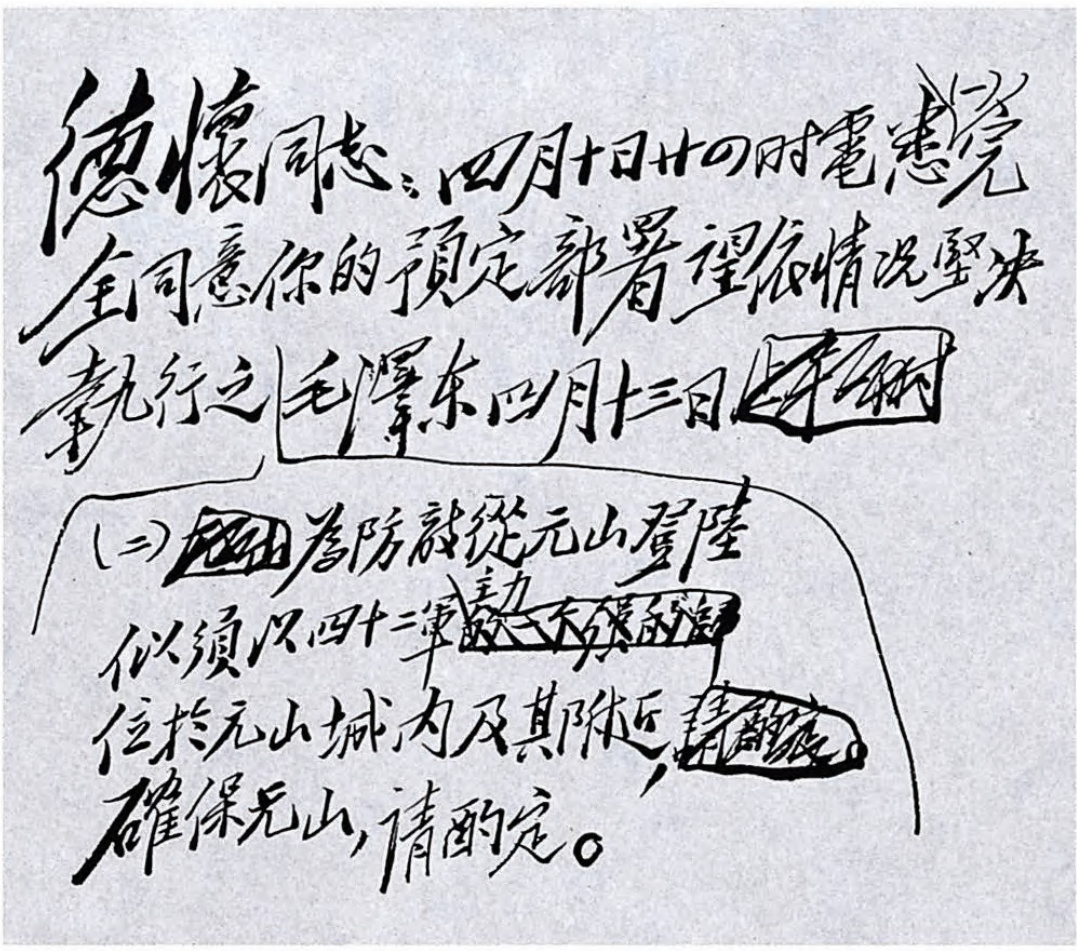 德懷同志：四月十日廿四时電悉(一)完
全同意你的預定部署望依情况堅决
執行之毛澤东四月十三日
(二)為防敵從元山登陸
似須以四十二軍主力
位於元山城内及其附近，
確保元山，请酌定。